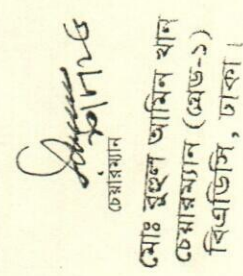 ২০/৭/২৫
চেয়ারম্যান
মোঃ রুহুল আমিন খান
চেয়ারম্যান (গ্রেড-১)
বিএডিসি, ঢাকা।